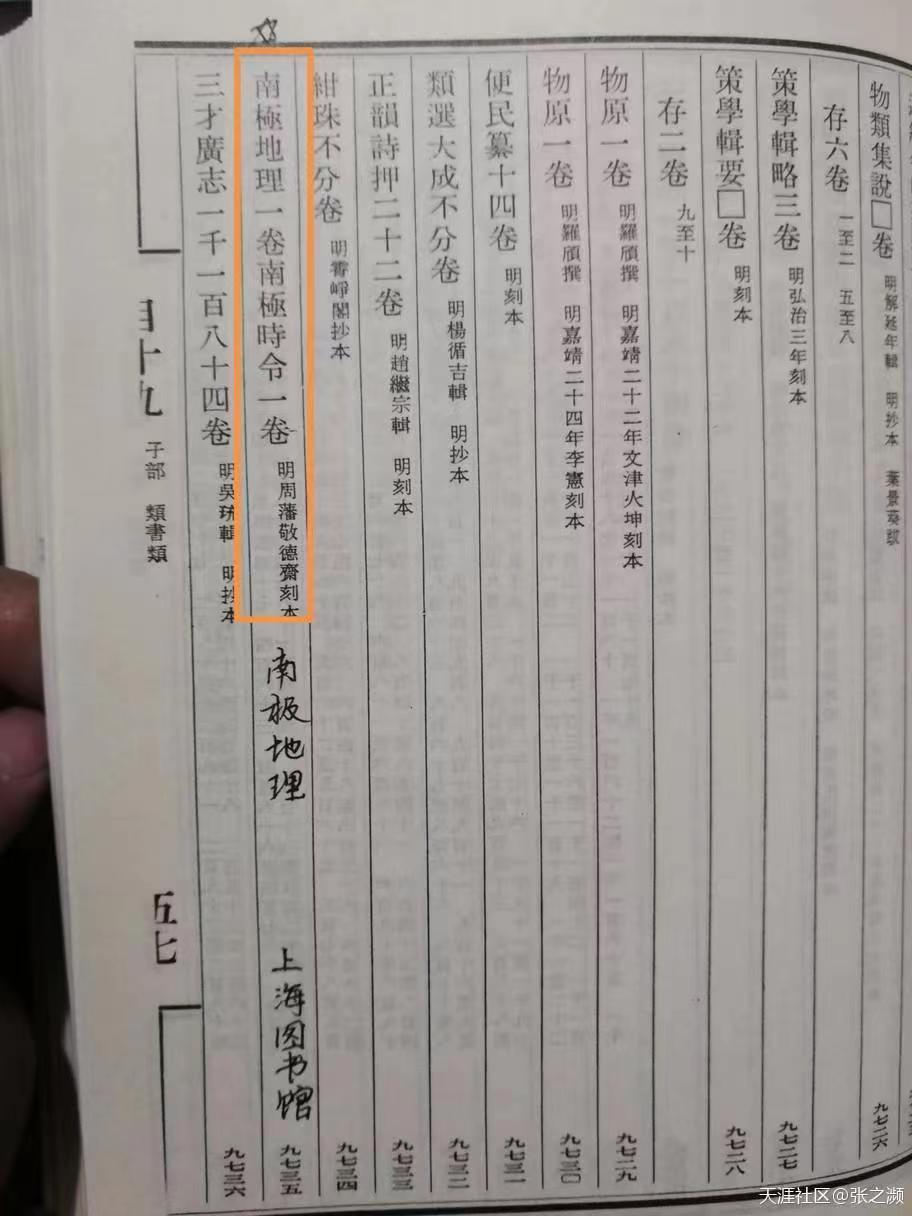 物類集說□卷 明解延年輯 明抄本 葉景葵跋 九七二六
存六卷 一至二 五至八
策學輯略三卷 明弘治三年刻本 九七二七
策學輯要□卷 明刻本 九七二八
存二卷 九至十
物原一卷 明羅頎撰 明嘉靖二十二年文津火坤刻本 九七二九
物原一卷 明羅頎撰 明嘉靖二十四年李憲刻本 九七三〇
便民纂十四卷 明刻本 九七三一
類選大成不分卷 明楊循吉輯 明抄本 九七三二
正韻詩押二十二卷 明趙繼宗輯 明刻本 九七三三
紺珠不分卷 明霽崢閣抄本 九七三四
南極地理一卷南極時令一卷 明周藩敬德齋刻本 九七三五
南极地理
上海图书馆
三才廣志一千一百八十四卷 明吳珫輯 明抄本 九七三六
目十九 子部 類書類
五七
天涯社区@张之濒